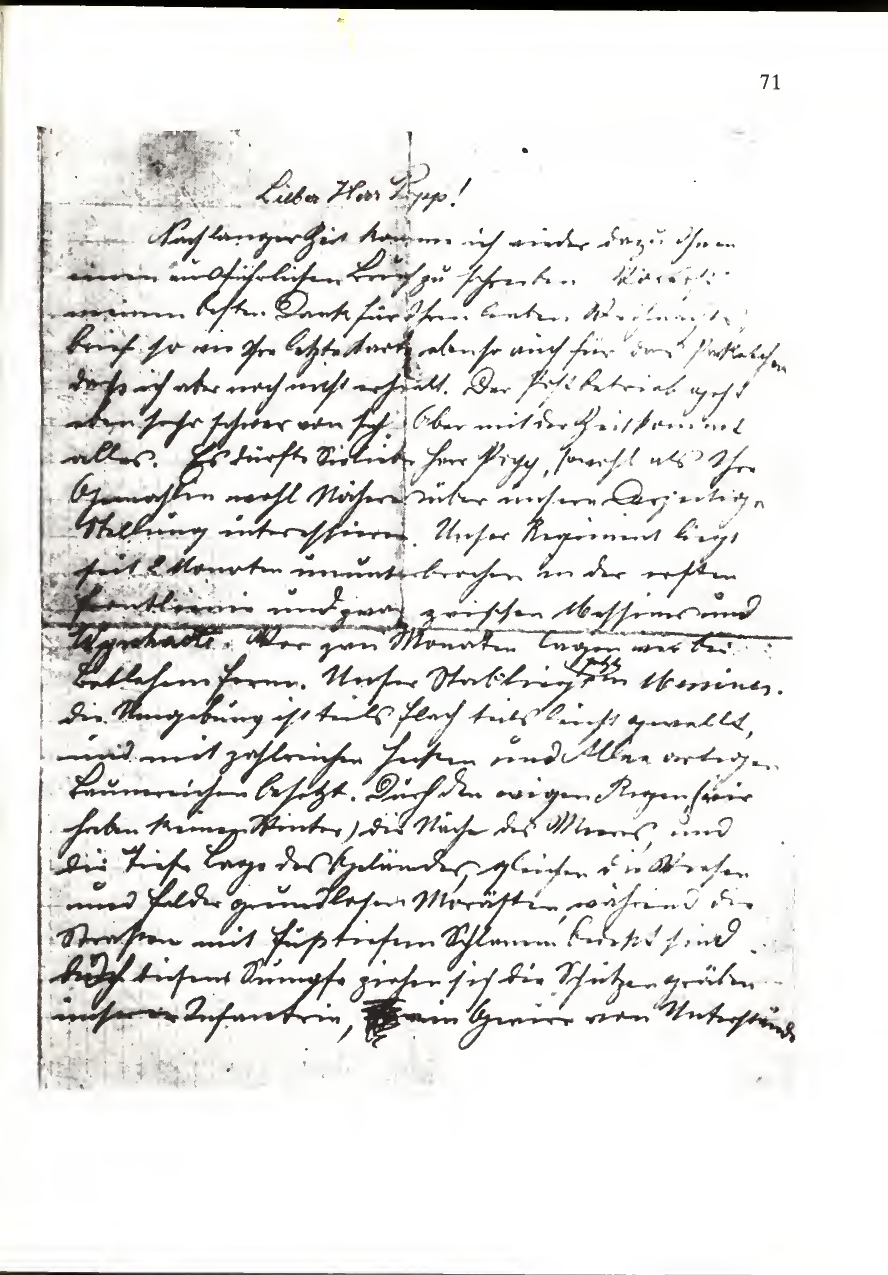 71
Lieber Herr Popp!
Nach langer Zeit komme ich wieder dazu Ihnen
einen ausführlichen Brief zu schreiben
meinen besten Dank für Ihren lieben Weihnachts
brief so wie Ihre letzte Karte ebenso auch für das
daß ich aber noch nicht erhielt. Der Postbetrieb geht
eben sehr schwer von sich. Aber mit der Zeit kommt
alles. Es dürfte Sie lieber Herr Popp, sowohl als Ihre
Gemahlin wohl Näheres über unsere Derzeitige
Stellung interessieren. Unser Regiment liegt
seit 2 Monaten ununterbrochen in der ersten
Frontlinie und zwar zwischen Messines und
Vor zwei Monaten lagen wir bei
Betlehem Ferm. Unser Stab liegt in Messines.
die Umgebung ist teils flach teils leicht gewellt,
und mit zahlreichen Hecken und Allee artigen
Baumreichen besetzt. Durch den ewigen Regen, (wir
haben keinen Winter) die Nähe des Meeres, und
die Tiefe Lage des Geländes, gleichen die Wiesen
und Felder grundlosen Morästen, während die
Straßen mit fußtiefem Schlamm bedeckt sind
durch diesen Sumpfe ziehen sich die Schützengräben
unserer Infantrie, ein Gewirr von Unterstände